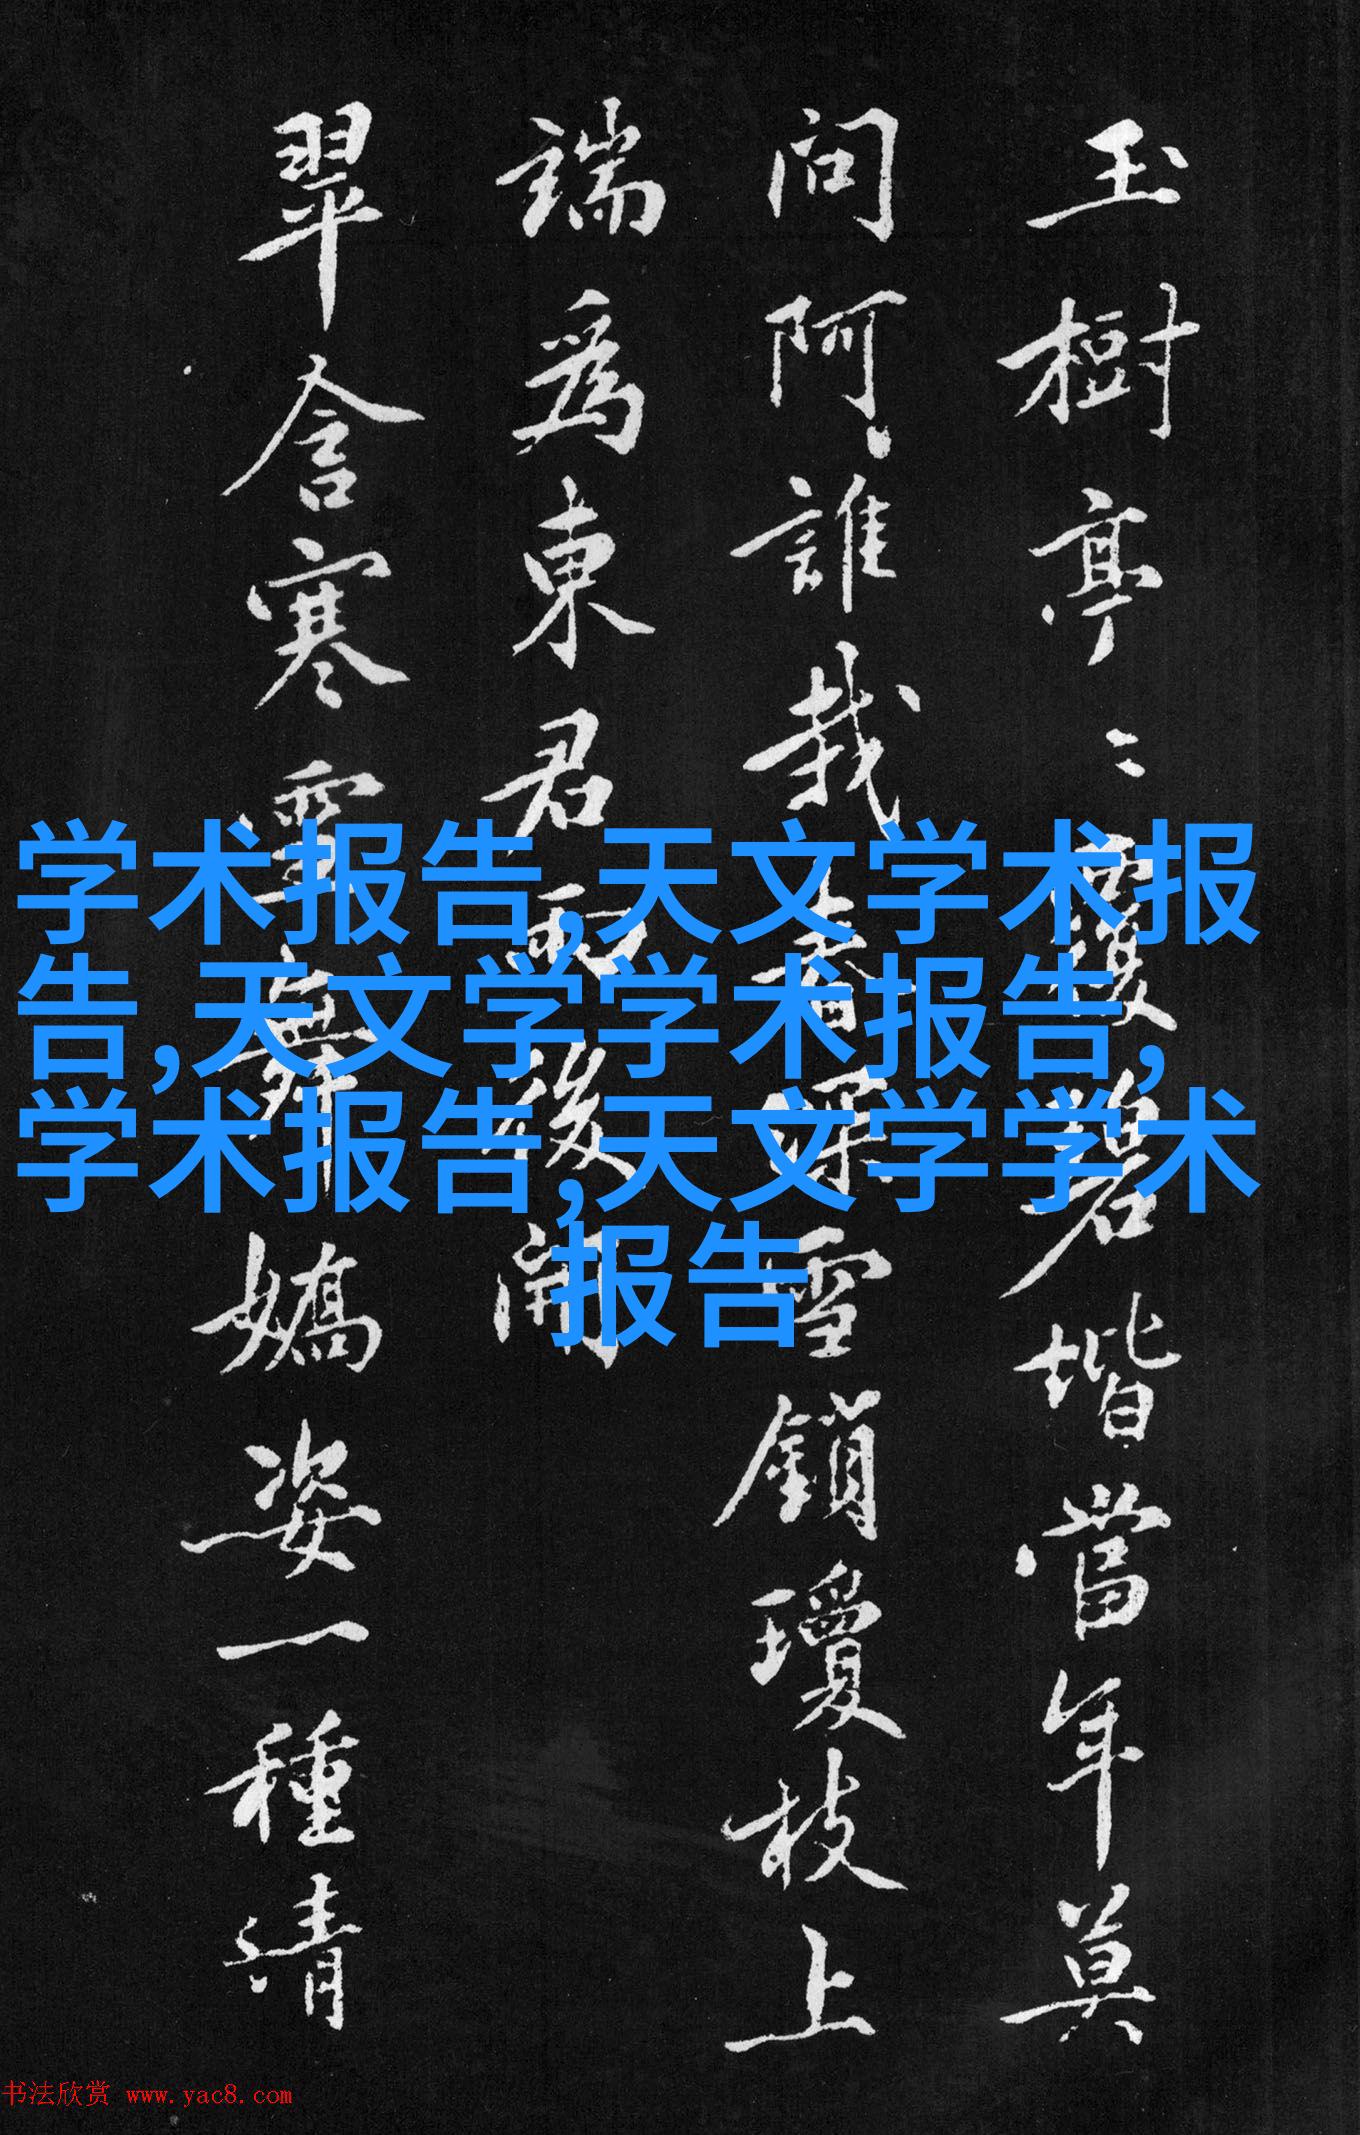 玉樹亭〻覆碧堦當年莫
問阿誰栽春深雪鎖瓊枝上
端爲東君雨後開
翠含寒露舞嬌姿一種清
学术报告,天文学术报
告,天文学学术报告,
学术报告,天文学学术
报告
书法欣赏 www.yac8.com